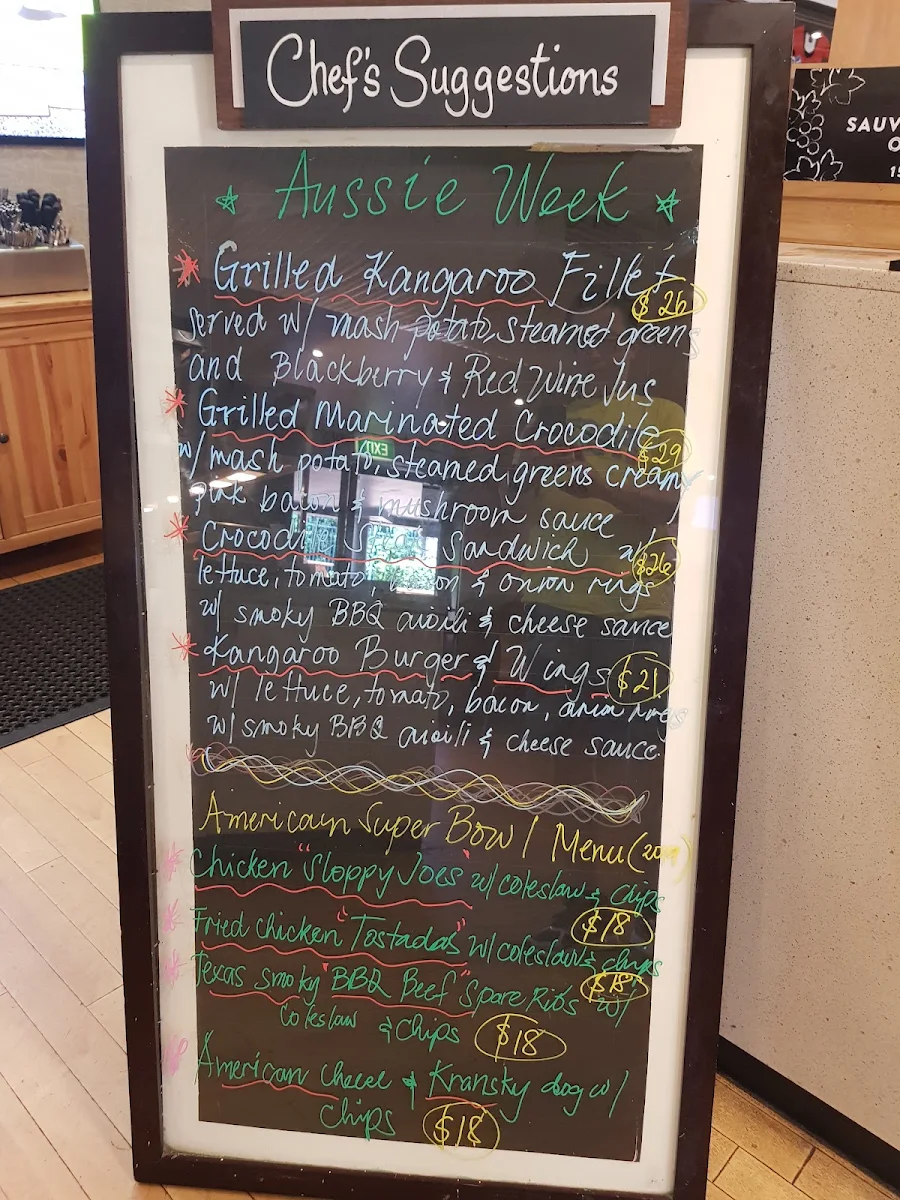 Chef's Suggestions
SAUV
Aussie Week
Grilled Kangaroo Fillet
$26
served w/ mash potato, steamed greens
and Blackberry & Red Wine Jus
Grilled Marinated Crocodile
$29
w/ mash potato, steamed greens creamy
bacon & mushroom sauce
EXIT
Crocodile Steak Sandwich w/
$26
lettuce, tomato, bacon & onion rings
w/ smoky BBQ aioili & cheese sauce
Kangaroo Burger & Wings
$21
w/ lettuce, tomato, bacon, onion rings
w/ smoky BBQ aioili & cheese sauce
American Super Bowl Menu
Chicken "Sloppy Joes" w/ coleslaw & chips
$18
Fried chicken "Tostadas" w/ coleslaw & chips
$18
Texas smoky "BBQ Beef" Spare Ribs w/
Coleslaw & Chips $18
American & Kransky dog w/
Chips $18